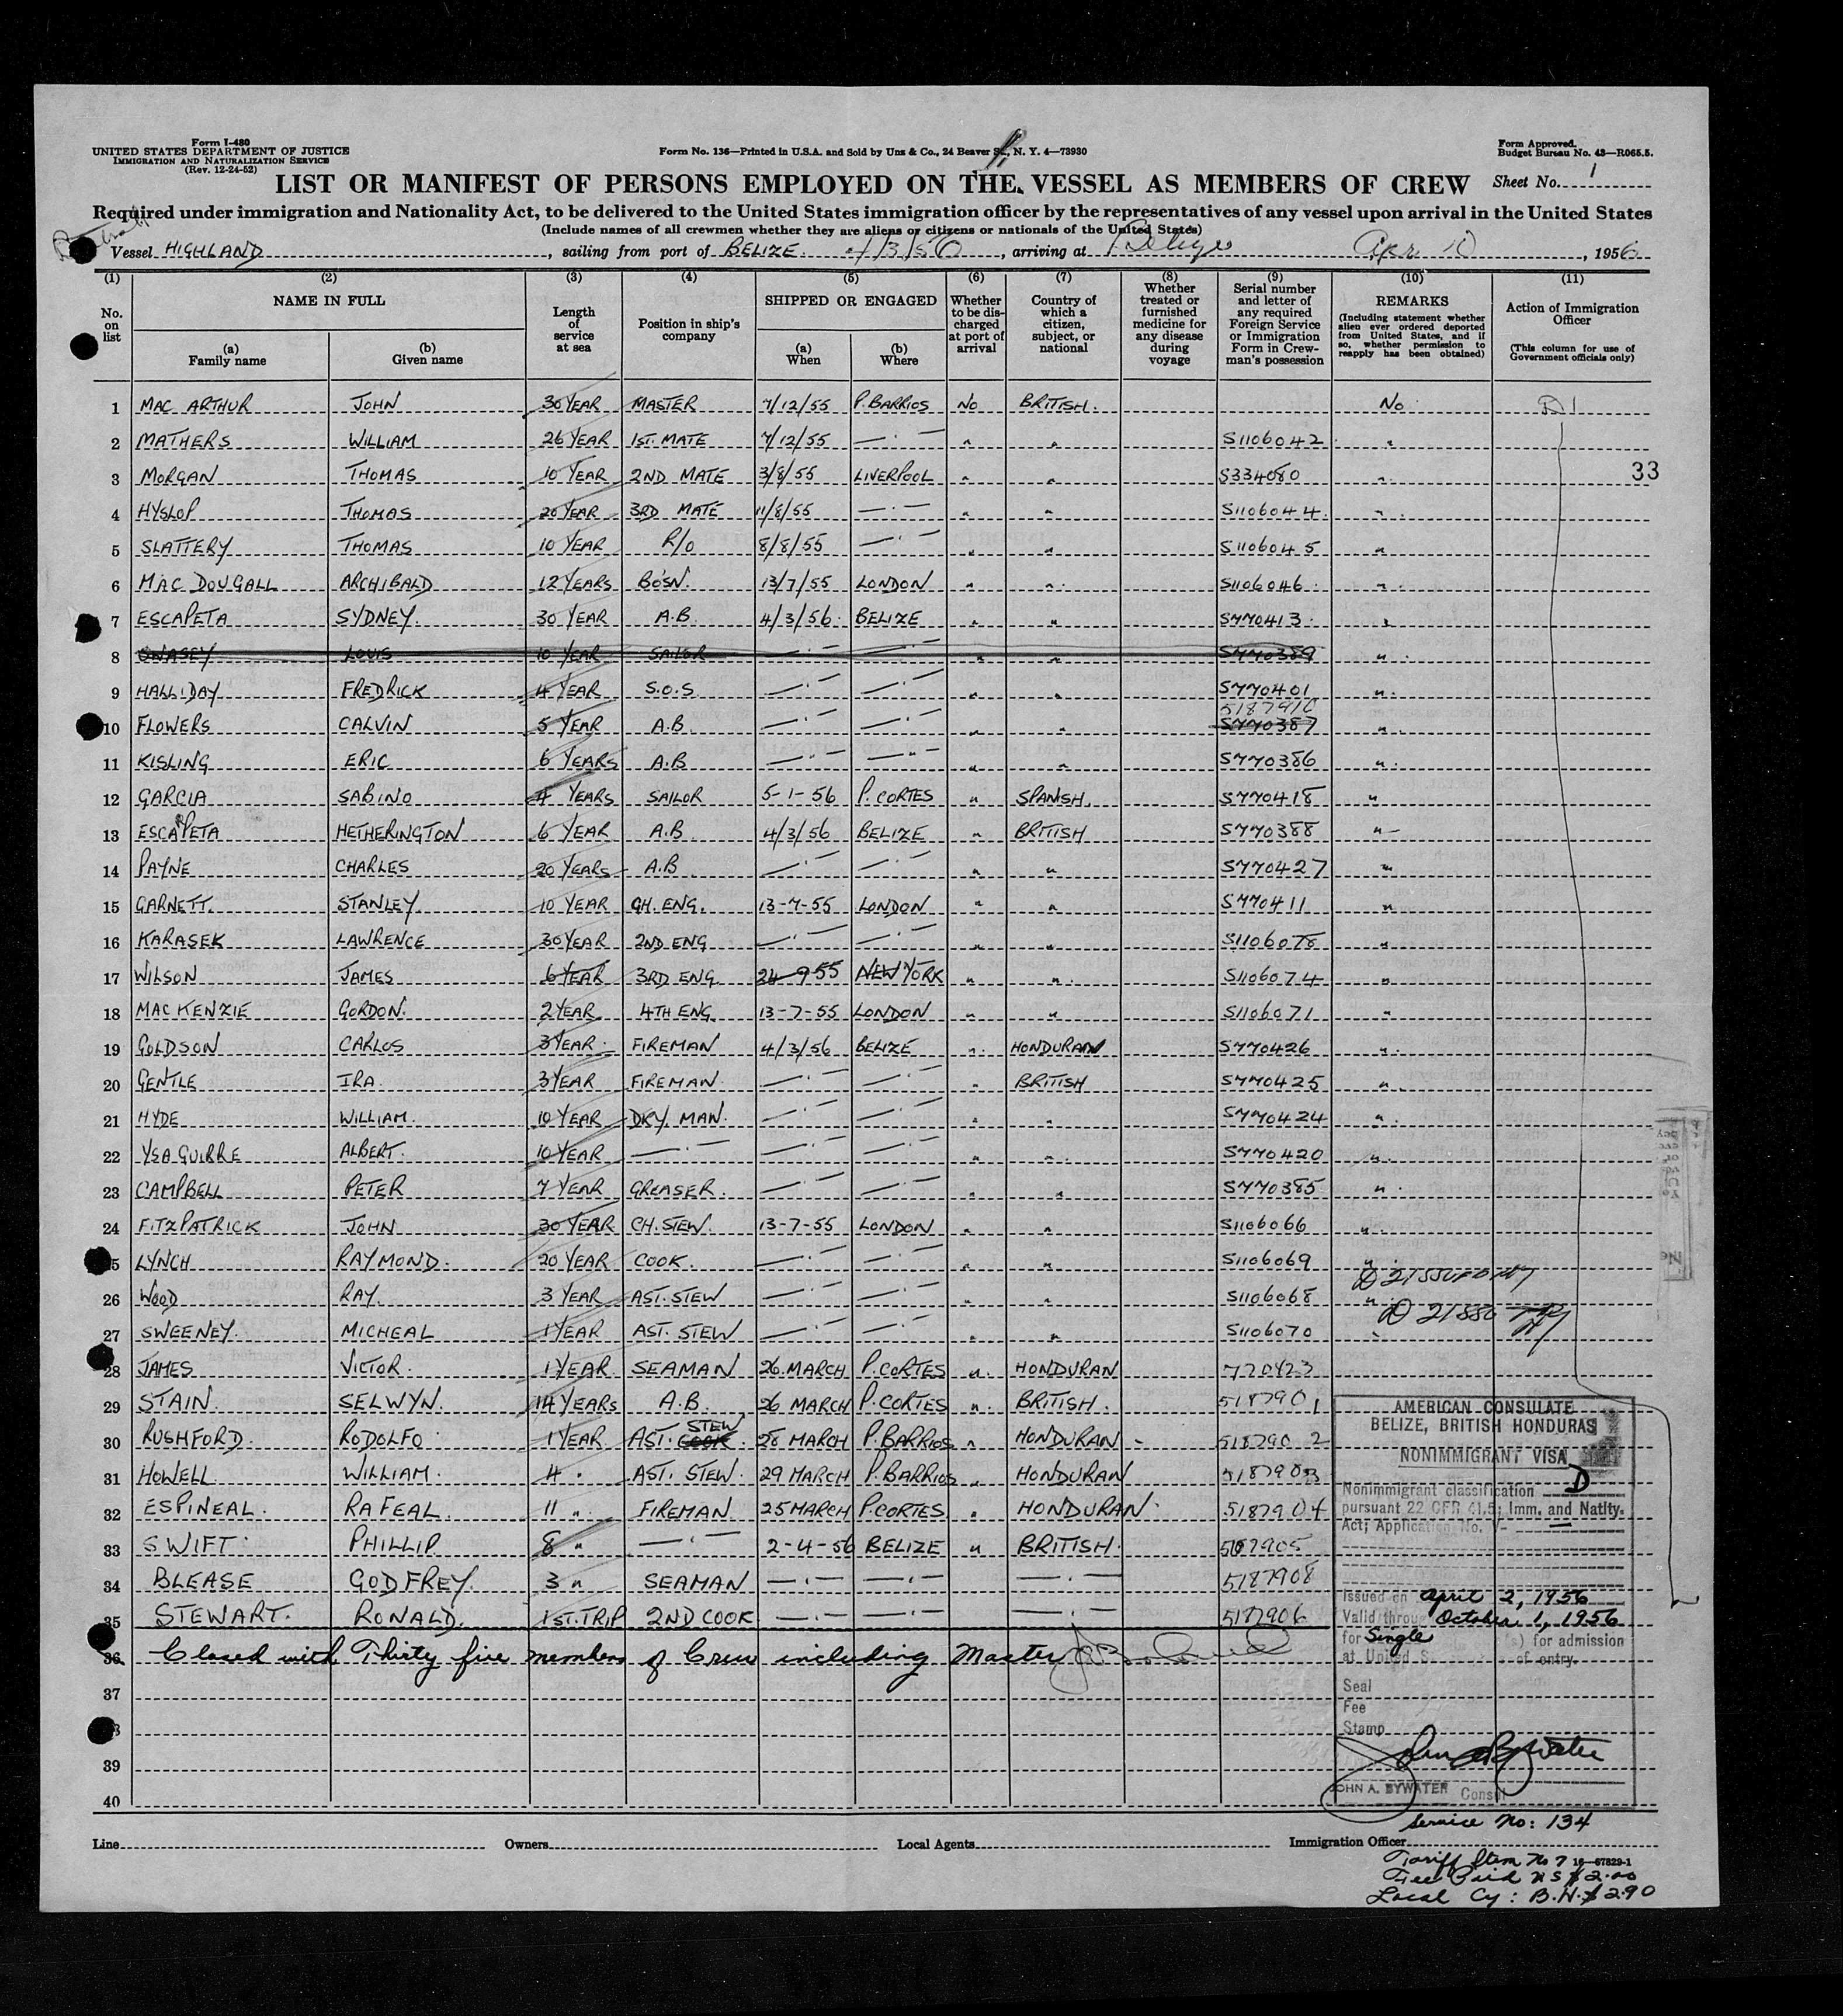 Form I-480
UNITED STATES DEPARTMENT OF JUSTICE
IMMIGRATION AND NATURALIZATION SERVICE
(Rev. 12-24-52)
Form No. 136—Printed in U.S.A. and Sold by Unz & Co., 24 Beaver St., N. Y. 4—73930
Form Approved.
Budget Bureau No. 43—R065.5.
LIST OR MANIFEST OF PERSONS EMPLOYED ON THE VESSEL AS MEMBERS OF CREW
Sheet No. 1
Required under immigration and Nationality Act, to be delivered to the United States immigration officer by the representatives of any vessel upon arrival in the United States
(Include names of all crewmen whether they are aliens or citizens or nationals of the United States)
Vessel HIGHLAND, sailing from port of BELIZE. 4/3/56, arriving at Apr 10, 1956
(1) (2) (3) (4) (5) (6) (7) (8) (9) (10) (11)
No. on list
NAME IN FULL
(a) Family name
(b) Given name
Length of service at sea
Position in ship's company
SHIPPED OR ENGAGED
(a) When
(b) Where
Whether to be discharged at port of arrival
Country of which a citizen, subject, or national
Whether treated or furnished medicine for any disease during voyage
Serial number and letter of any required Foreign Service or Immigration Form in Crewman's possession
REMARKS
(Including statement whether alien ever ordered deported from United States, and if so, whether permission to reapply has been obtained)
Action of Immigration Officer
(This column for use of Government officials only)
1 MAC ARTHUR JOHN 30 YEAR MASTER 7/12/55 P. BARRIOS NO BRITISH. NO D1
2 MATHERS WILLIAM 26 YEAR 1ST. MATE 7/12/55 —·— " " S1106042 "
3 MORGAN THOMAS 10 YEAR 2ND MATE 3/8/55 LIVERPOOL " " S334080 "
33
4 HYSLOP THOMAS 20 YEAR 3RD MATE 11/8/55 —·— " " S1106044 "
5 SLATTERY THOMAS 10 YEAR R/O 8/8/55 —·— " " S1106045 "
6 MAC DOUGALL ARCHIBALD 12 YEARS BO'SN. 13/7/55 LONDON " " S1106046 "
7 ESCAPETA SYDNEY. 30 YEAR A.B. 4/3/56 BELIZE " " S770413 "
8 GWASEY LOUIS 10 YEAR SAILOR —·— —·— " " S770389 "
9 HALLIDAY FREDRICK 4 YEAR S.O.S. —·— —·— " " S770401 "
5187910
10 FLOWERS CALVIN 5 YEAR A.B. —·— —·— " " S770387 "
11 KISLING ERIC 6 YEARS A.B —·— —·— " " S770386 "
12 GARCIA SABINO 4 YEARS SAILOR 5-1-56 P. CORTES " SPANISH. S770418 "
13 ESCAPETA HETHERINGTON 6 YEAR A.B. 4/3/56 BELIZE " BRITISH S770388 "
14 PAYNE CHARLES 20 YEARS A.B —·— —·— " " S770427 "
15 GARNETT. STANLEY 10 YEAR CH. ENG. 13-7-55 LONDON " " S770411 "
16 KARASEK LAWRENCE 30 YEAR 2ND ENG —·— —·— " " S1106078 "
17 WILSON JAMES 6 YEAR 3RD ENG. 24-9-55 NEW YORK " " S1106074 "
18 MAC KENZIE GORDON. 2 YEAR. 4TH ENG. 13-7-55 LONDON " " S1106071 "
19 GOLDSON CARLOS 3 YEAR. FIREMAN 4/3/56 BELIZE " HONDURAN S770426 "
20 GENTLE IRA. 3 YEAR FIREMAN —·— —·— " BRITISH S770425 "
21 HYDE WILLIAM. 10 YEAR DKY. MAN. —·— —·— " " S770424 "
22 YSAGUIRRE ALBERT. 10 YEAR —·— —·— —·— " " S770420 "
23 CAMPBELL PETER 7 YEAR GREASER. —·— —·— " " S770385 "
24 FITZPATRICK JOHN 30 YEAR CH. STEW. 13-7-55 LONDON " " S1106066 "
25 LYNCH RAYMOND. 20 YEAR COOK. —·— —·— " " S1106069 "
26 WOOD RAY. 3 YEAR AST. STEW —·— —·— " " S1106068 "
27 SWEENEY. MICHEAL 1 YEAR AST. STEW —·— —·— " " S1106070 "
28 JAMES VICTOR. 1 YEAR. SEAMAN 26 MARCH P. CORTES " HONDURAN 770423
29 STAIN. SELWYN. 14 YEARS A.B. 26 MARCH P. CORTES " BRITISH. 5187901
30 RUSHFORD. RODOLFO 1 YEAR AST. COOK STEW 28 MARCH P. BARRIOS " HONDURAN 5187902
31 HOWELL WILLIAM. 4 " AST. STEW. 29 MARCH P. BARRIOS " HONDURAN 5187903
32 ESPINEAL. RAFEAL. 11 " FIREMAN 25 MARCH P. CORTES " HONDURAN 5187904
33 SWIFT PHILLIP 8 " —·— 2-4-56 BELIZE " BRITISH. 5187905
34 BLEASE GODFREY. 3 " SEAMAN —·— —·— —·— 5187908
35 STEWART. RONALD. 1ST. TRIP 2ND COOK —·— —·— —·— 5187906
36 Closed with Thirty five members of Crew including Master
37
38
39
40
AMERICAN CONSULATE
BELIZE, BRITISH HONDURAS
NONIMMIGRANT VISA
Nonimmigrant classification D
pursuant 22 CFR 41.5; Imm. and Natlty.
Act; Application No. V- —
Issued on April 2, 1956
Valid through October 1, 1956
for Single (s) for admission
at United S. of entry.
Seal
Fee
Stamp
John A. Bywater
JOHN A. BYWATER Consul
Service No: 134
Line Owners Local Agents Immigration Officer
Tariff Item No 7 16—67829-1
Fee Paid US $2.00
Local Cy: B.H. $2.90